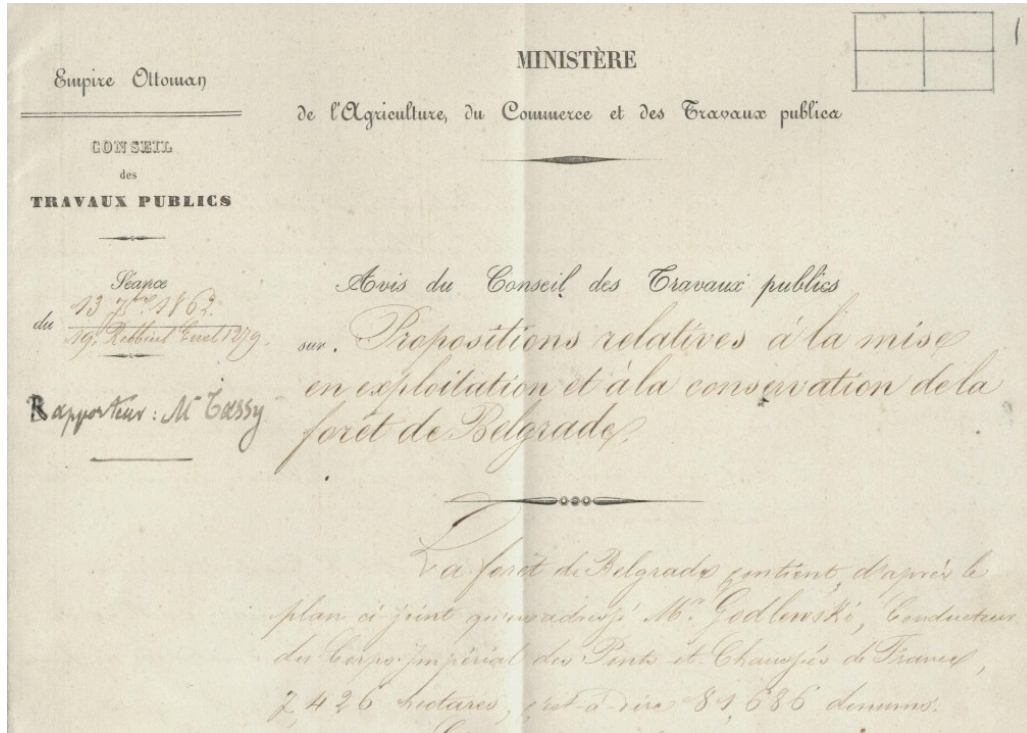 1
Empire Ottoman
CONSEIL
des
TRAVAUX PUBLICS
Séance
du 13 7bre 1862.
19. Rebbiul Ewel 1279.
Rapporteur: Mr Tassy
MINISTÈRE
de l'Agriculture, du Commerce et des Travaux publics
Avis du Conseil des Travaux publics
sur. Propositions relatives à la mise
en exploitation et à la conservation de la
forêt de Belgrade.
La forêt de Belgrade contient, d'après le
plan ci-joint qu'en a dressé Mr. Godlewski, Conducteur
du Corps Impérial des Ponts et Chaussées de France,
7,426 hectares, c'est-à-dire 81,686 deunums.